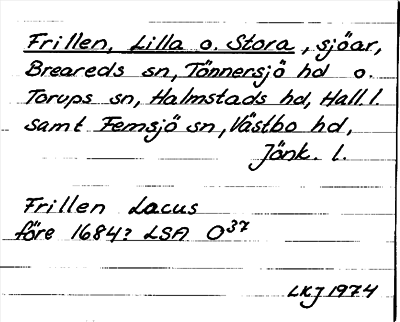 Frillen, Lilla o. Stora, sjöar,
Breareds sn, Tönnersjö hd o.
Torups sn, Halmstads hd, Hall. l.
samt Femsjö sn, Västbo hd,
Jönk. l.
Frillen Lacus
före 1684? LSA O37
LKJ 1974